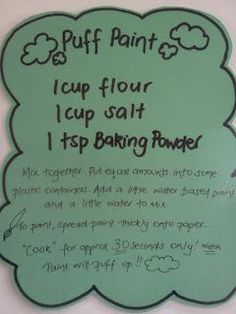 Puff Paint
1 cup flour
1 cup salt
1 tsp Baking Powder
Mix together. Put equal amounts into some
plastic containers. Add a little water based paint
and a little water to mix.
To paint, spread paint thickly onto paper...
"Cook" for approx 30 seconds only! watch
Paint will puff up!!